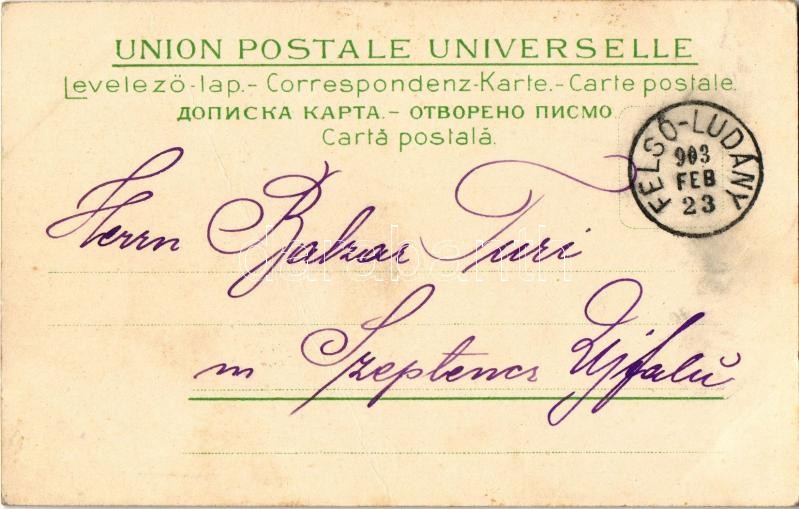 UNION POSTALE UNIVERSELLE
Levelező-lap.- Correspondenz-Karte.- Carte postale.
ДОПИСКА КАРТА.- ОТВОРЕНО ПИСМО
Cartă postală.
FELSŐ-LUDÁNY
903
FEB
23
Herrn Balzar Turi
darabanth
in Szeptencz Ujfalú